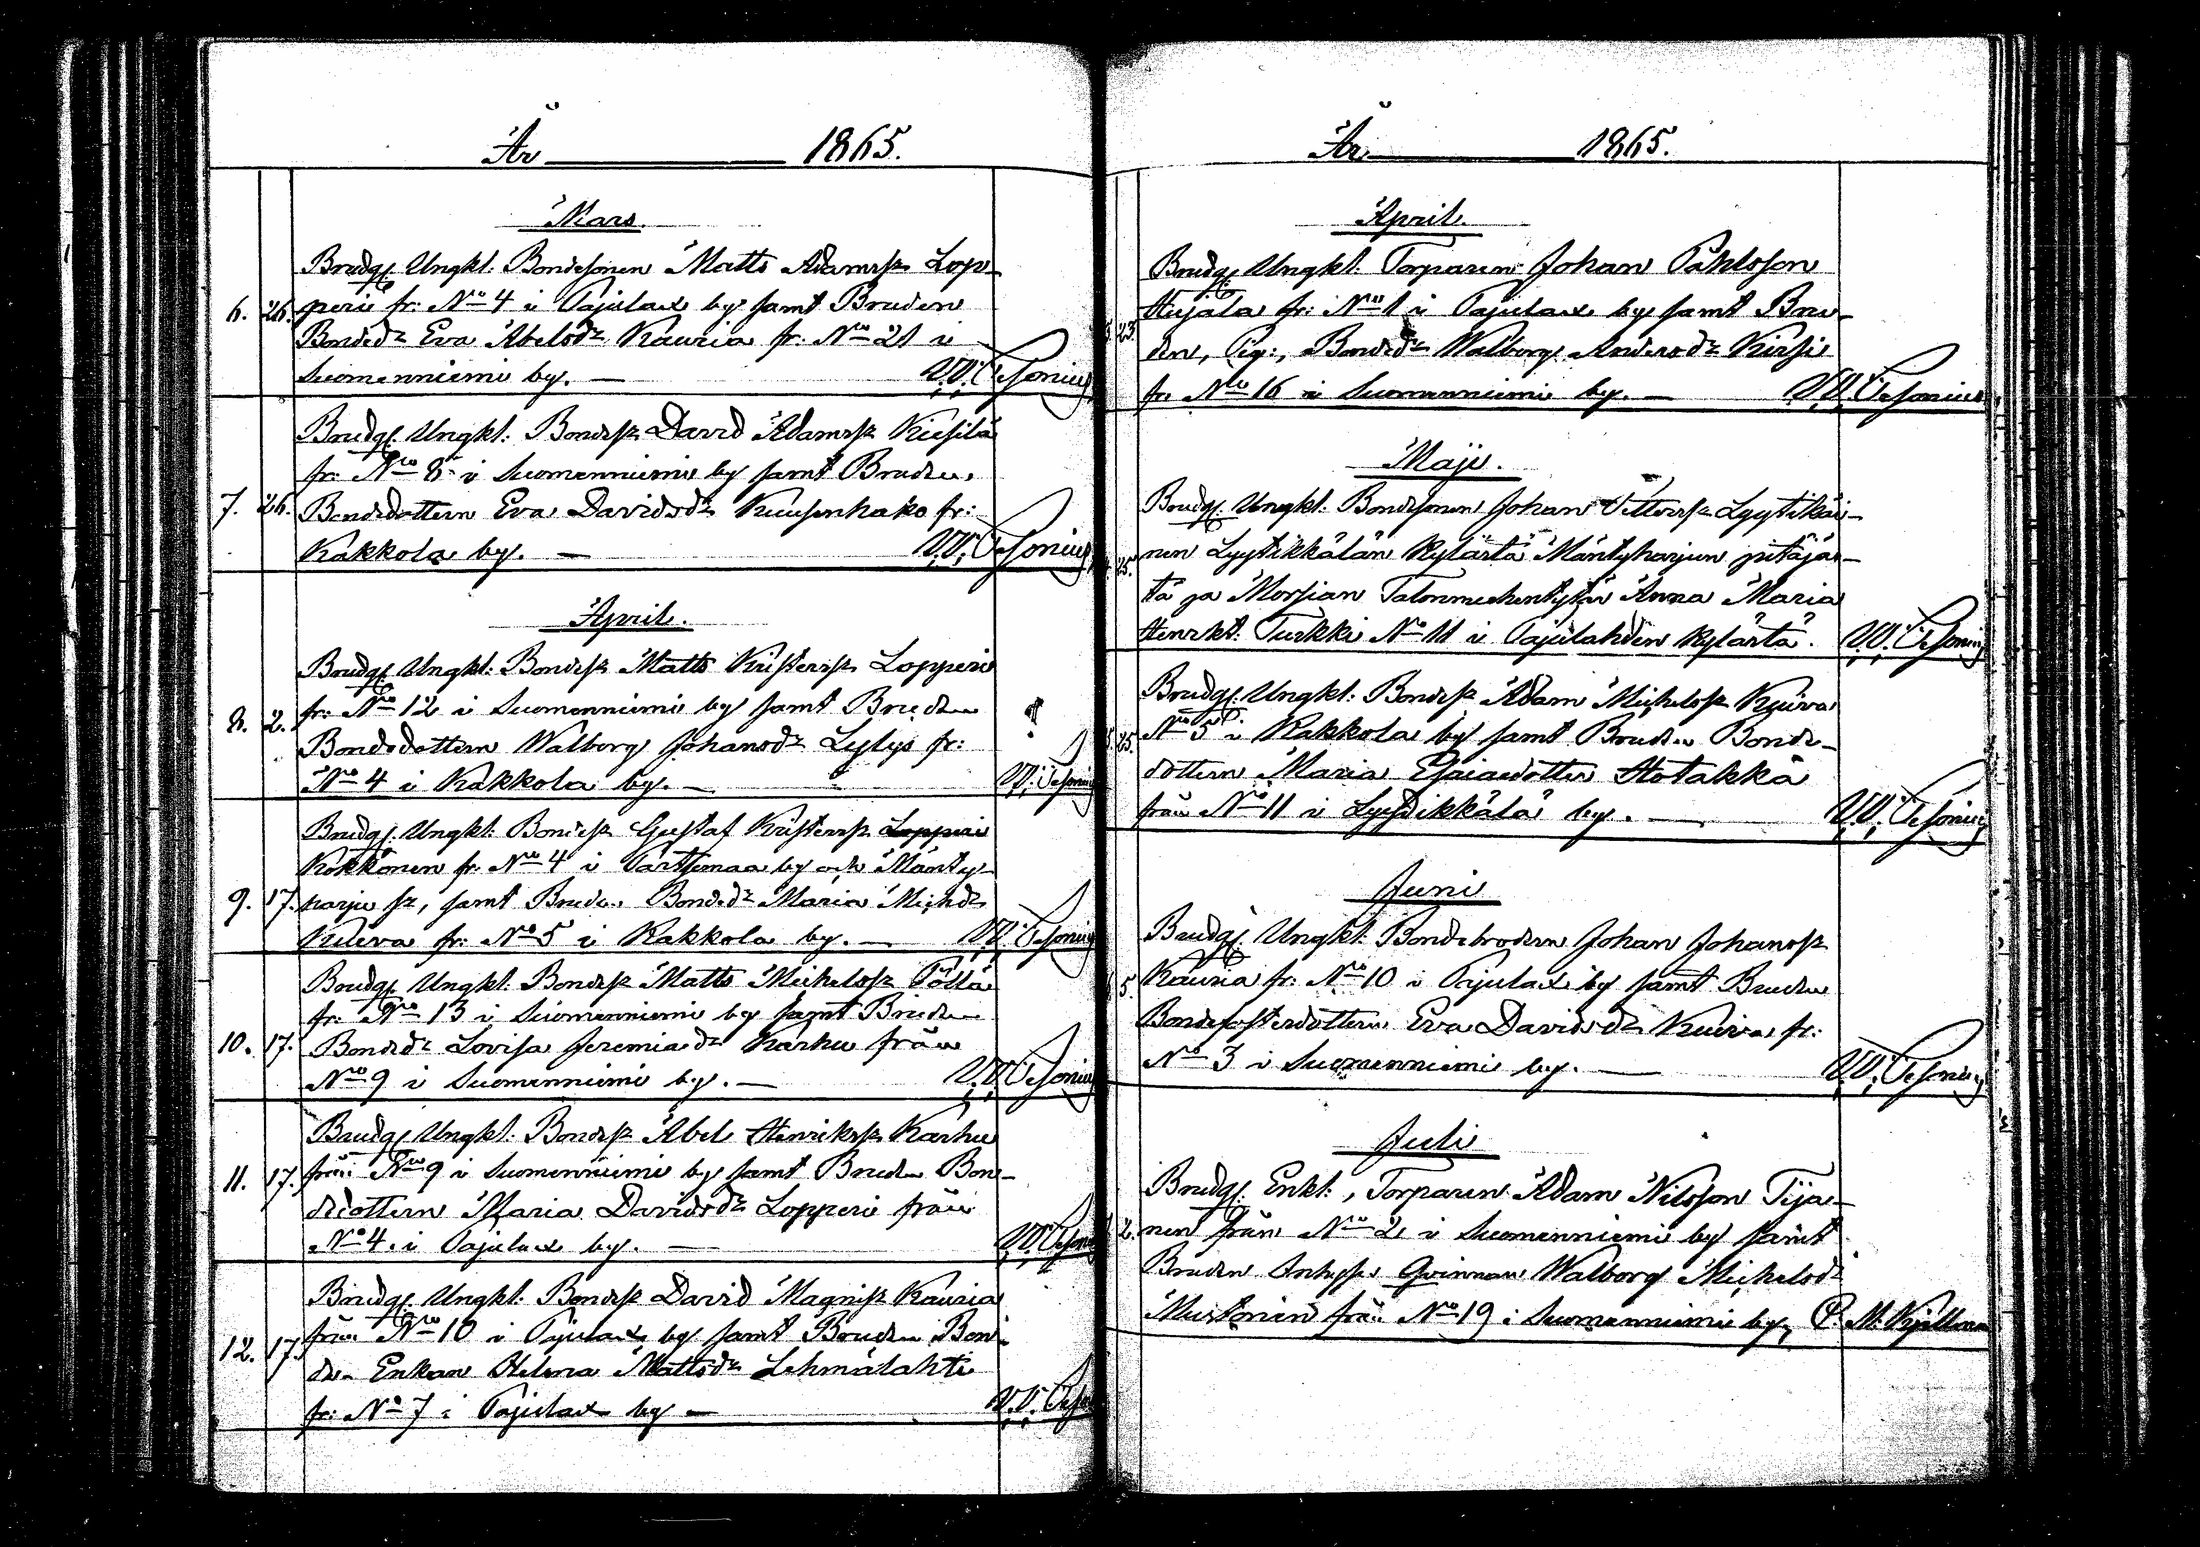 År 1865.
Mars.
Brudg. Ungkl. Bondesonen Matts Adamsz Lop-
6. 26. peri fr. No 4 i Pajulax by samt Bruden
Bondedr Eva Abelsdr Kauria fr. No 21 i
Suomenniemi by. —
Brudg. Ungkl. Bondesz David Adamsz
fr. No 8 i Suomenniemi by samt Bruden,
7. 26. Bondedottern Eva Davidsdr Kuusenhako fr:
Kakkola by. —
April.
Brudg. Ungkl. Bondesz Matts Kristersz Lopperi
8. 2. fr. No 12 i Suomenniemi by samt Bruden
Bondedottern Walborg Johansdr Lylys fr:
No 4 i Kakkola by. —
Brudg. Ungkl. Bondesz Gustaf Kristersz Lopperi
Kokkonen fr. No 4 i Partsimaa by och Mänty-
9. 17. harju sz, samt Bruden Bondedr Maria Michdr
Kuiva fr. No 5 i Kakkola by. —
Brudg. Ungkl. Bondesz Matts Mickelsz Pöllä
fr. No 13 i Suomenniemi by samt Bruden
10. 17. Bondedr Lovisa Jeremiaedr Karhu från
No 9 i Suomenniemi by. —
Brudg. Ungkl. Bondesz Abel Henriksz Karhu
11. 17. från No 9 i Suomenniemi by samt Bruden Bon-
dedottern Maria Davidsdr Lopperi från
No 4 i Pajulax by. —
Brudg. Ungkl. Bondesz David Magnisz Kauria
12. 17. från No 10 i Pajulax by samt Bruden Bon-
de Enkan Helena Mattsdr Lehmälahti
fr. No 7 i Pajulax by —
År 1865.
April.
Brudg. Ungkl. Torparen Johan Påhlsson
Hujala fr. No 1 i Pajulax by samt Bru-
23. den, Pig:, Bondedr Walborg Andersdr Kirsi
fr. No 16 i Suomenniemi by. —
Maji.
Brudg. Ungkl. Bondesonen Johan Lyytikäi-
25. nen Lyytikkälän kylästä Mäntyharjun pitäjäs-
tä ja Morsian Talonmiehentytär Anna Maria
Henrikt. Turkki No 11 i Pajulahden kylästä.
Brudg. Ungkl. Bondesz Adam Michelsz Kuiva
25. No 5 i Kakkola by samt Bruden Bonde-
dottern Maria Esaiaedotter Hotakka
från No 11 i Lyytikkälä by. —
Juni
Brudg. Ungkl. Bondebrodern Johan Johansz
5. Kauria fr. No 10 i Pajulax by samt Bruden
Bondefosterdottern Eva Davidsdr Kuiva fr:
No 3 i Suomenniemi by. —
Juli
Brudg. Enkl., Torparen Adam Nilsson Tija-
2. nen från No 2 i Suomenniemi by samt
Bruden Inhyses Qvinnan Walborg Mickelsdr
Mustonen från No 19 i Suomenniemi by,